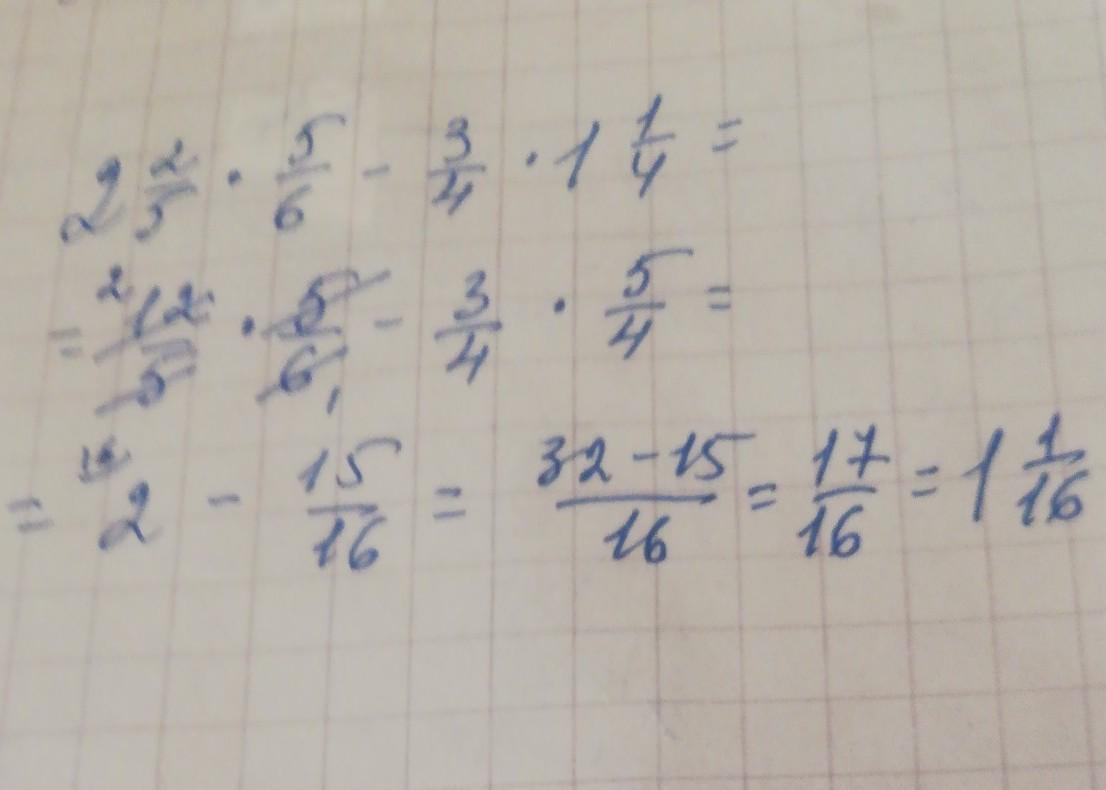 2 2/5 · 5/6 - 3/4 · 1 1/4 =
= ² 12/5 · 5/6 ₁ - 3/4 · 5/4 =
= ¹⁶ 2 - 15/16 = 32-15/16 = 17/16 = 1 1/16